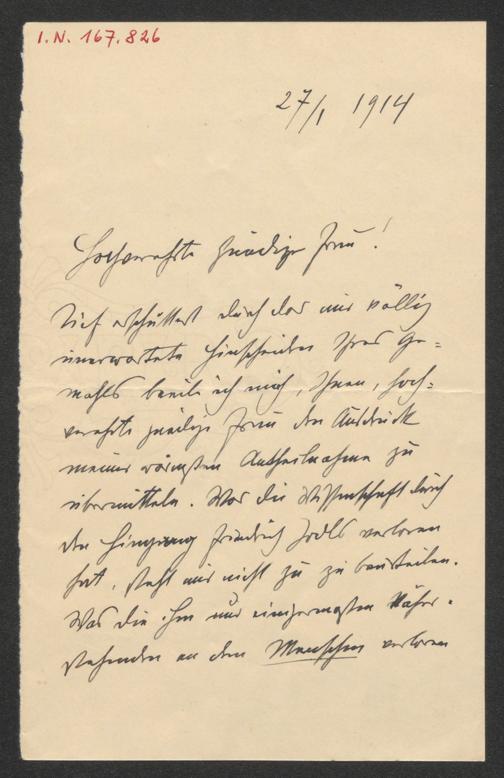 I.N. 167.826
27/1 1914
Hochverehrte gnädige Frau!
Tief erschüttert durch das mir völlig
unerwartete Hinscheiden Ihres Ge-
mahls beeile ich mich, Ihnen, hoch-
verehrte gnädige Frau den Ausdruck
meiner wärmsten Antheilnahme zu
übermitteln. Was die Wissenschaft durch
den Hingang Friedrich Jodls verloren
hat, steht mir nicht zu zu beurteilen.
Was die ihm nur einigermaßen Näher-
stehenden an dem Menschen verloren